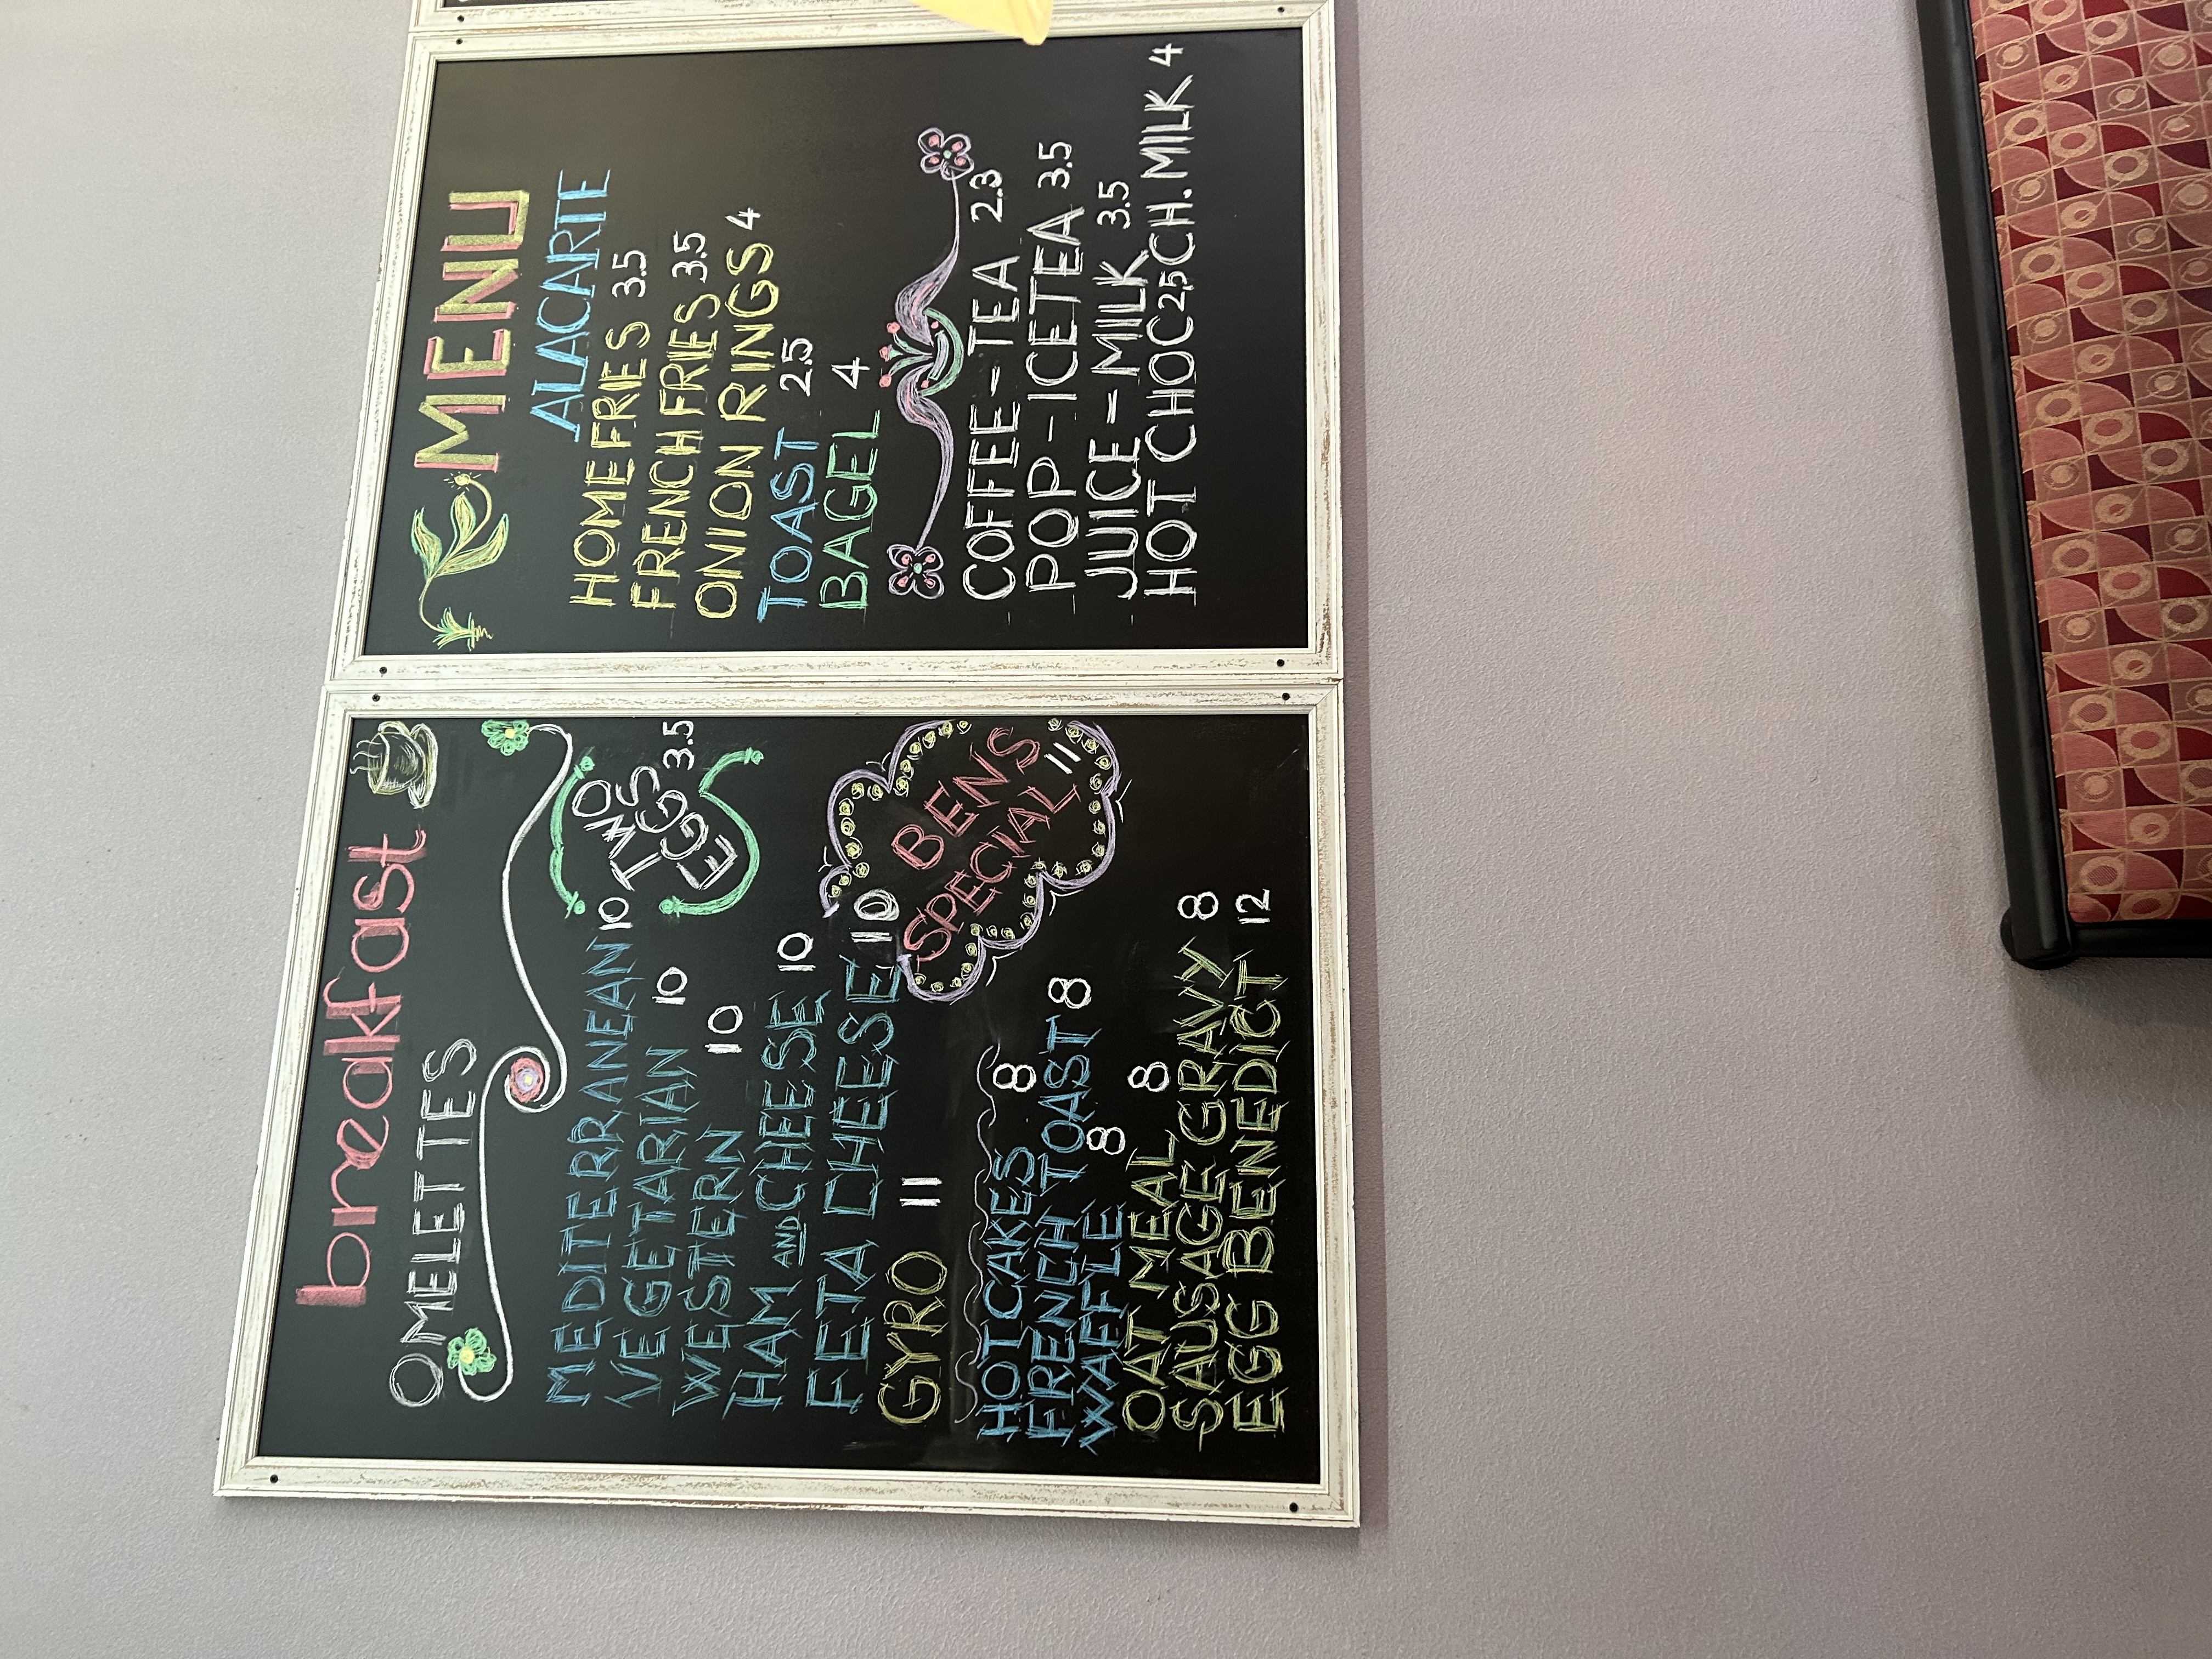 breakfast
OMELETTES
MEDITERRANEAN 10
VEGETARIAN 10
WESTERN 10
HAM AND CHEESE 10
FETA CHEESE 10
GYRO 11
TWO
EGGS 3.5
BENS
SPECIAL 11
HOTCAKES 8
FRENCH TOAST 8
WAFFLE 8
OAT MEAL 8
SAUSAGE GRAVY 8
EGG BENEDICT 12
MENU
ALACARTE
HOMEFRIES 3.5
FRENCH FRIES 3.5
ONION RINGS 4
TOAST 2.5
BAGEL 4
COFFEE - TEA 2.3
POP - ICETEA 3.5
JUICE - MILK 3.5
HOT CHOC 2.5 CH. MILK 4